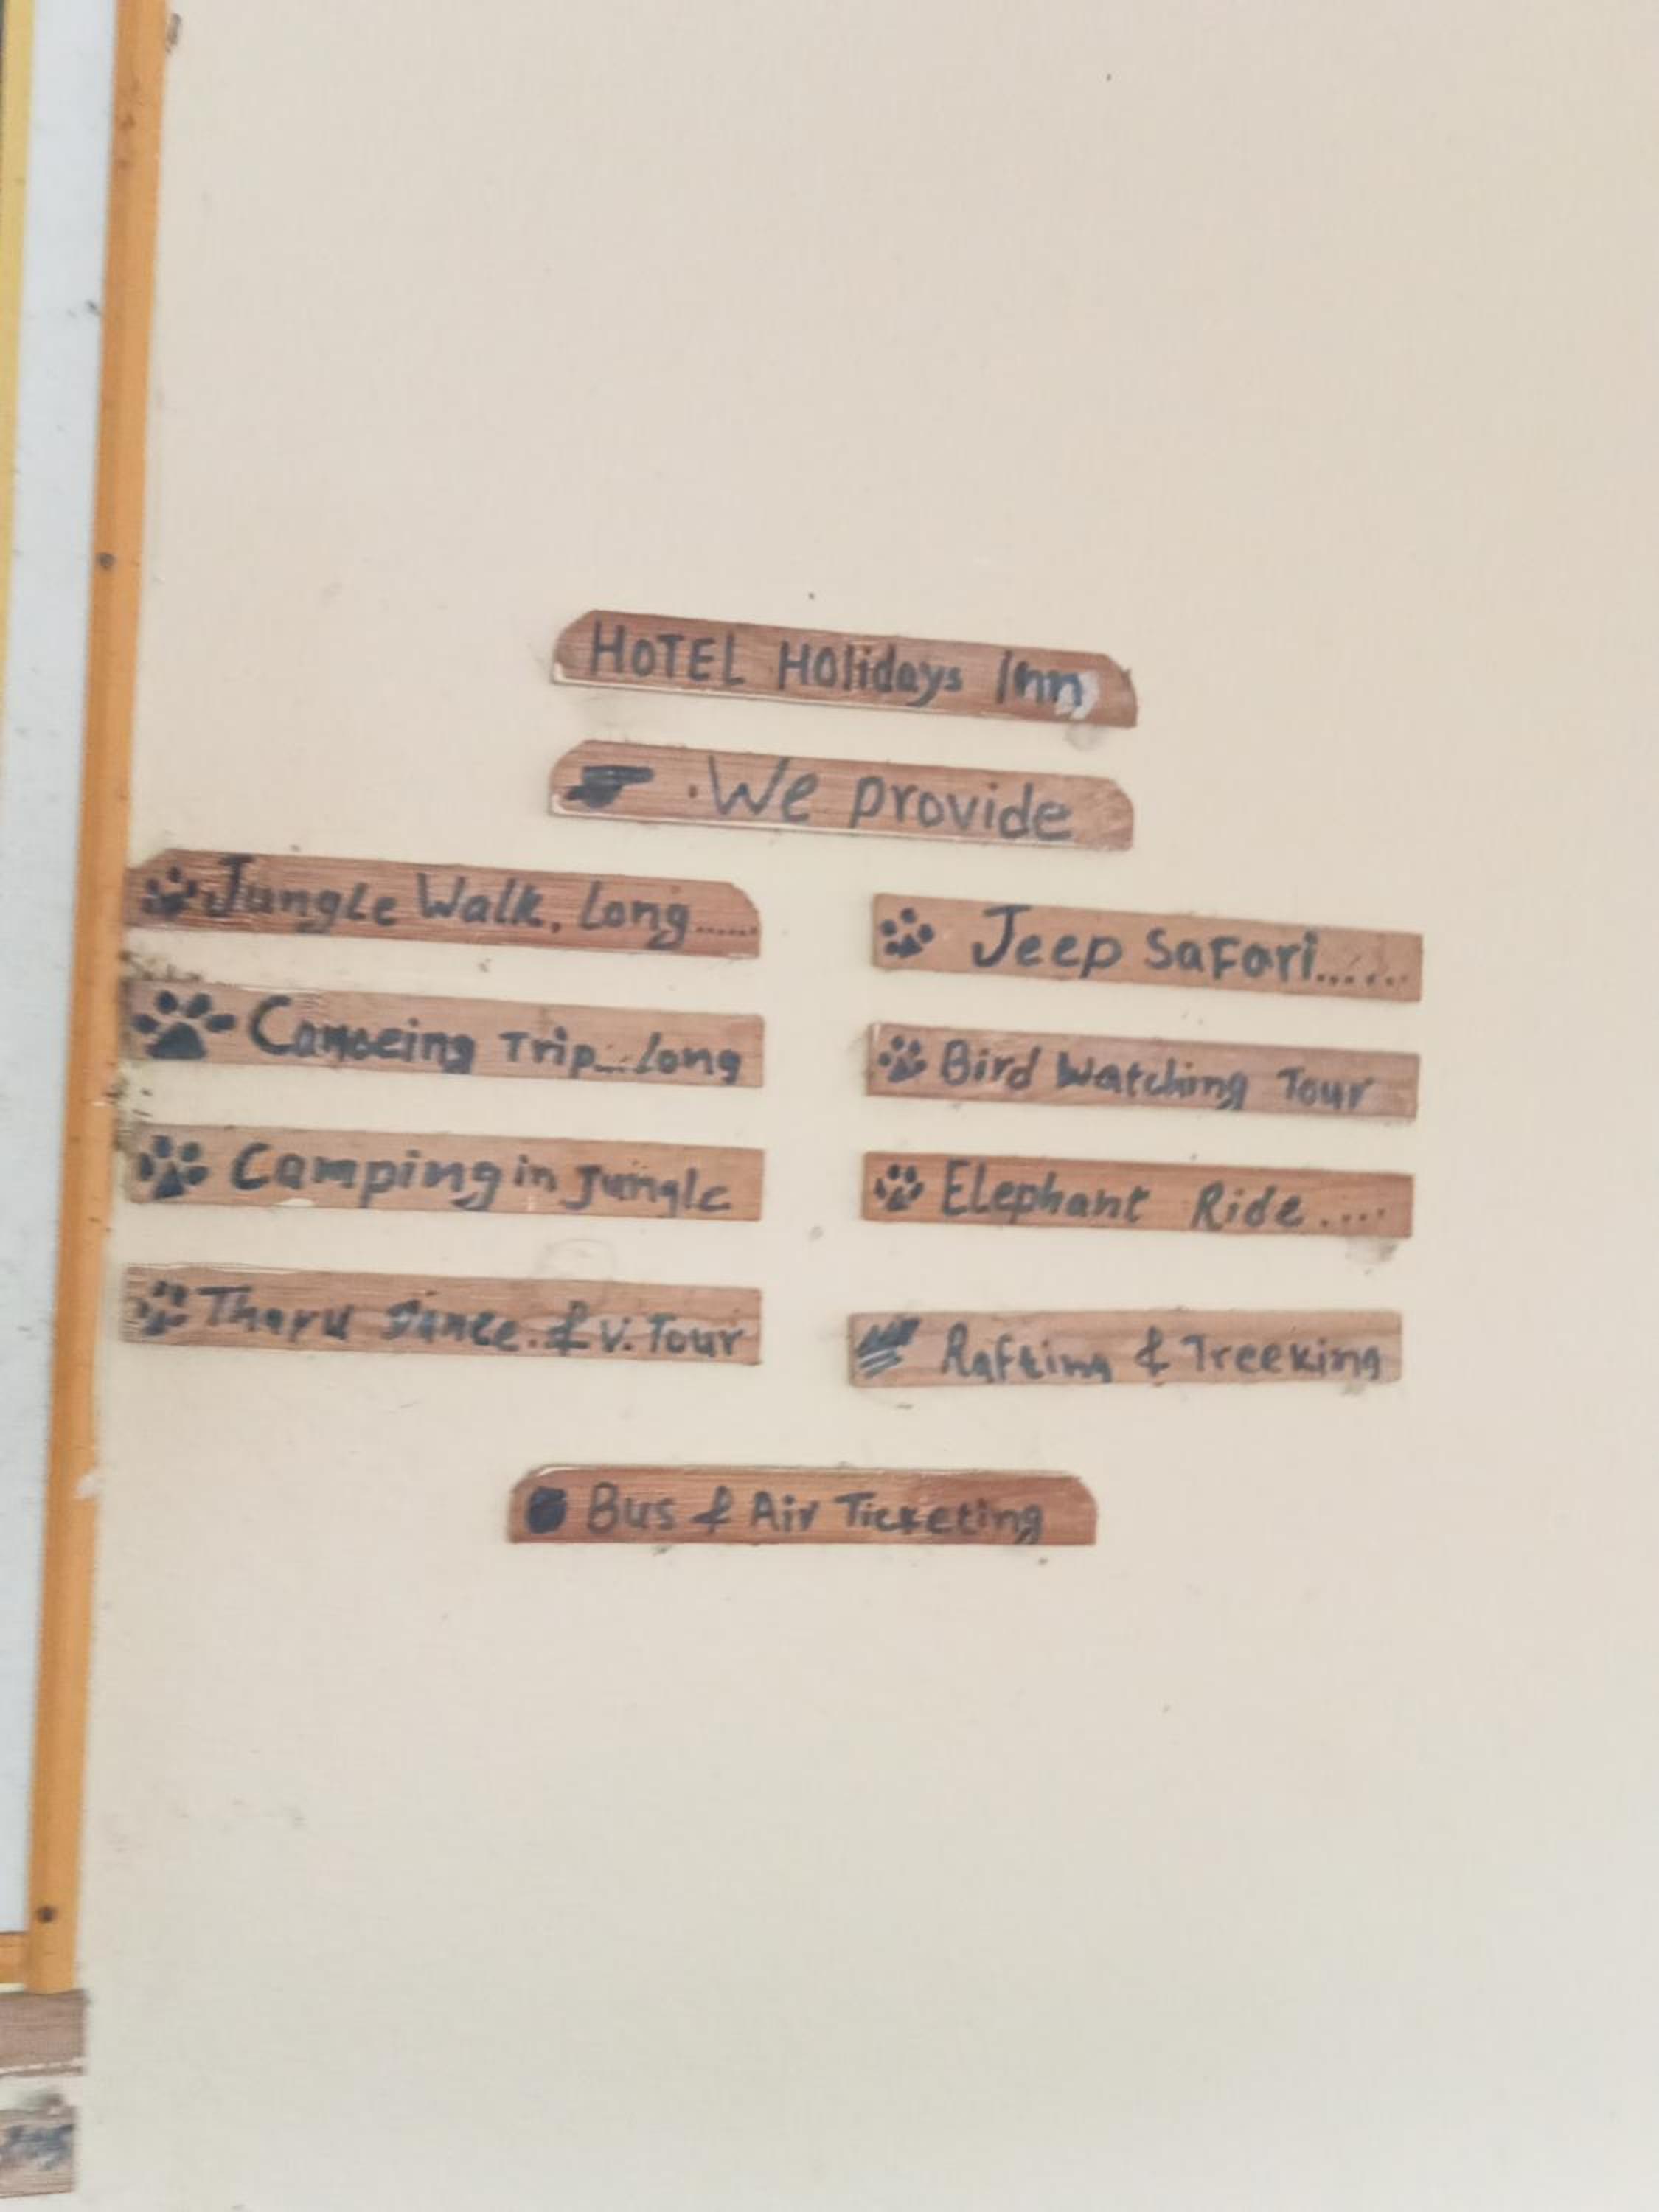 HOTEL Holidays Inn
We provide
Jungle Walk, Long......
Jeep Safari.......
Canoeing Trip...Long
Bird Watching Tour
Camping in Jungle
Elephant Ride.....
Tharu Dance. & V. Tour
Rafting & Treeking
Bus & Air Ticketing